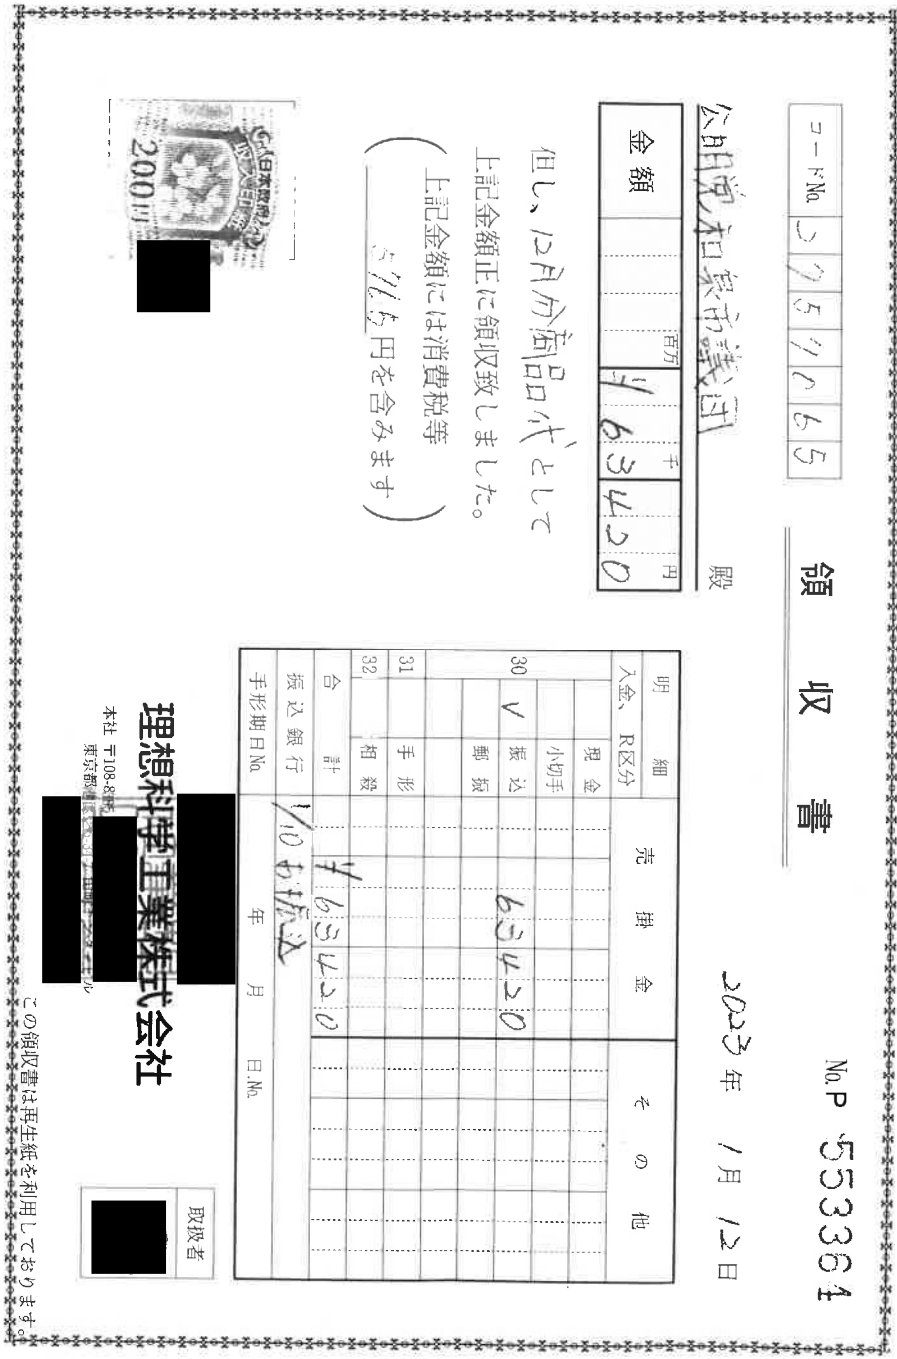 領収書
No. P 553364
コードNo.
2023年 1月 12日
公明党和泉市議団 殿
金額 百万 千 円
¥63420
但し、12月分商品代として
上記金額正に領収致しました。
上記金額には消費税等
5765円を含みます
明細 売掛金 その他
入金、R区分
現金
小切手
30 V 振込 63420
郵振
31 手形
32 相殺
合計 ¥63420
振込銀行 1/10 お振込
手形期日No. 年 月 日.No.
日本政府
収入印紙
200円
理想科学工業株式会社
本社 〒108-8385
東京都港区
取扱者
この領収書は再生紙を利用しております。